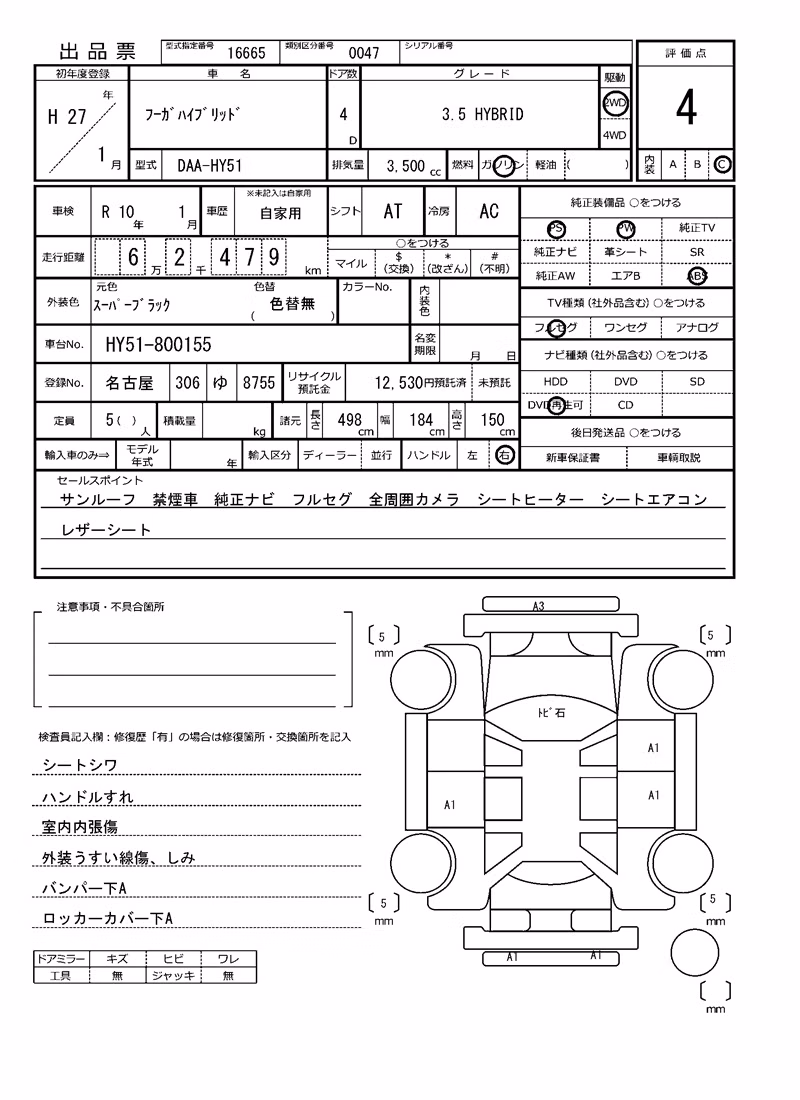 出品票 型式指定番号 16665 類別区分番号 0047 シリアル番号
評価点
4
内装 A B C
初年度登録 車名 ドア数 グレード 駆動
H 27 年 1 月 フーガハイブリッド 4 D 3.5 HYBRID 2WD
4WD
型式 DAA-HY51 排気量 3,500 cc 燃料 ガソリン 軽油 ( )
車検 R 10 年 1 月 車歴 ※未記入は自家用 自家用 シフト AT 冷房 AC
走行距離 6 万 2 千 4 7 9 km
○をつける
マイル $ (交換) * (改ざん) # (不明)
外装色 元色 スーパーブラック 色替 色替無 ( ) カラーNo. 内装色
車台No. HY51-800155 名変期限 月 日
登録No. 名古屋 306 ゆ 8755 リサイクル預託金 12,530円預託済 未預託
定員 5( ) 人 積載量 kg 諸元 長さ 498 cm 幅 184 cm 高さ 150 cm
輸入車のみ⇒ モデル年式 年 輸入区分 ディーラー 並行 ハンドル 左 右
純正装備品 ○をつける
PS PW 純正TV
純正ナビ 革シート SR
純正AW エアB ABS
TV種類(社外品含む)○をつける
フルセグ ワンセグ アナログ
ナビ種類(社外品含む)○をつける
HDD DVD SD
DVD再生可 CD
後日発送品 ○をつける
新車保証書 車輌取説
セールスポイント
サンルーフ 禁煙車 純正ナビ フルセグ 全周囲カメラ シートヒーター シートエアコン
レザーシート
注意事項・不具合箇所
検査員記入欄:修復歴「有」の場合は修復箇所・交換箇所を記入
シートシワ
ハンドルすれ
室内内張傷
外装うすい線傷、しみ
バンパー下A
ロッカーカバー下A
ドアミラー キズ ヒビ ワレ
工具 無 ジャッキ 無
A3
5 mm
5 mm
トビ石
A1
A1
A1
5 mm
5 mm
A1 A1
mm